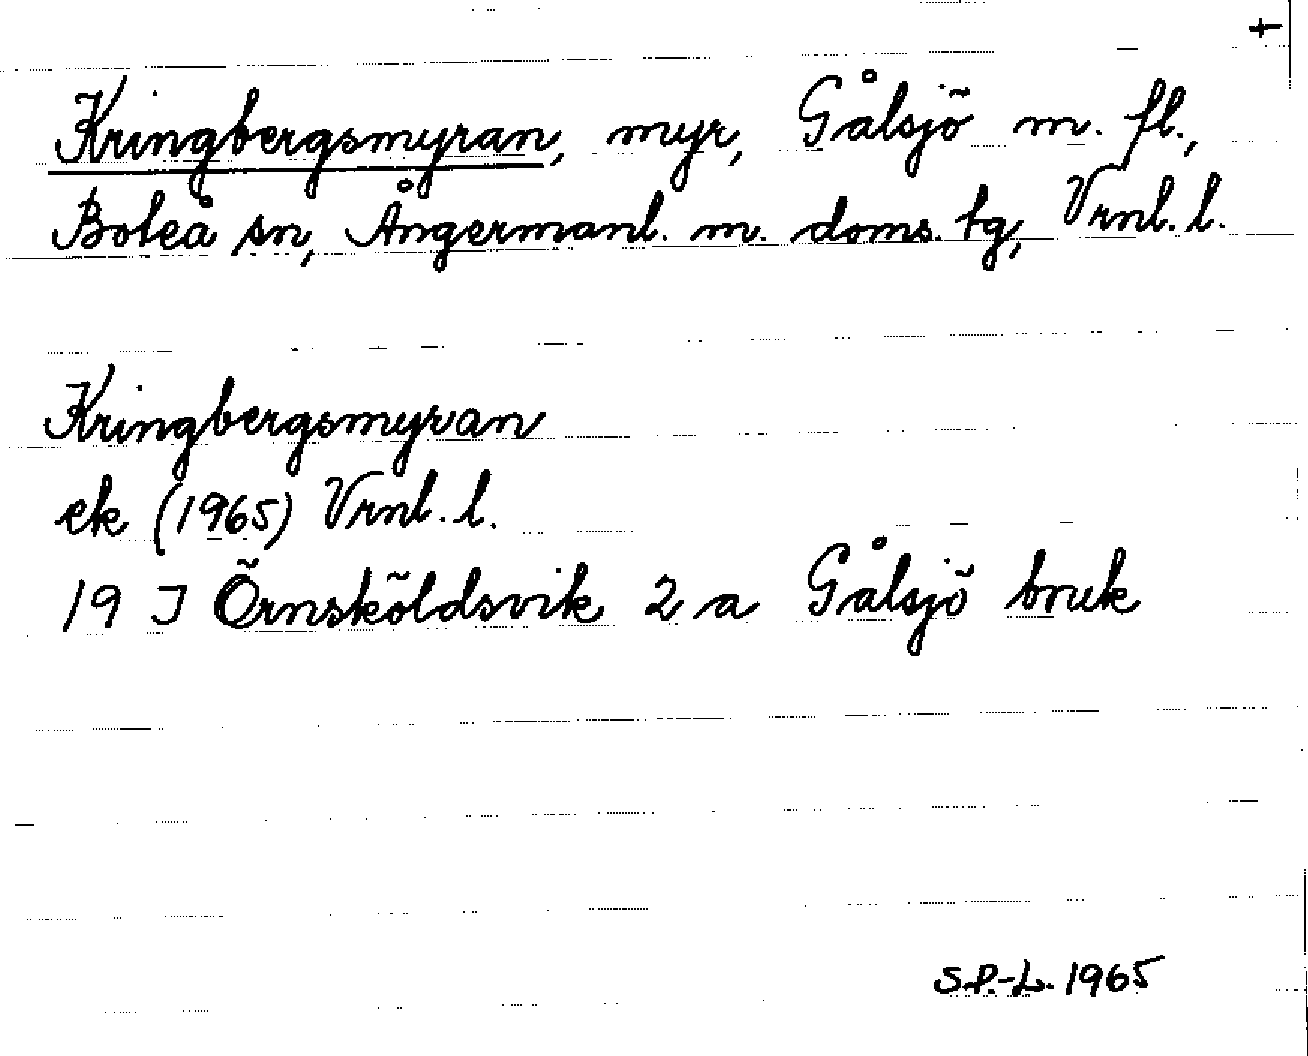 +
Kringbergsmyran, myr, Gålsjö m. fl.,
Boteå sn, Ångermanl. m. doms. tg, Vrnl. l.
Kringbergsmyran
ek (1965) Vrnl. l.
19 I Örnsköldsvik 2 a Gålsjö bruk
S.P.-L. 1965